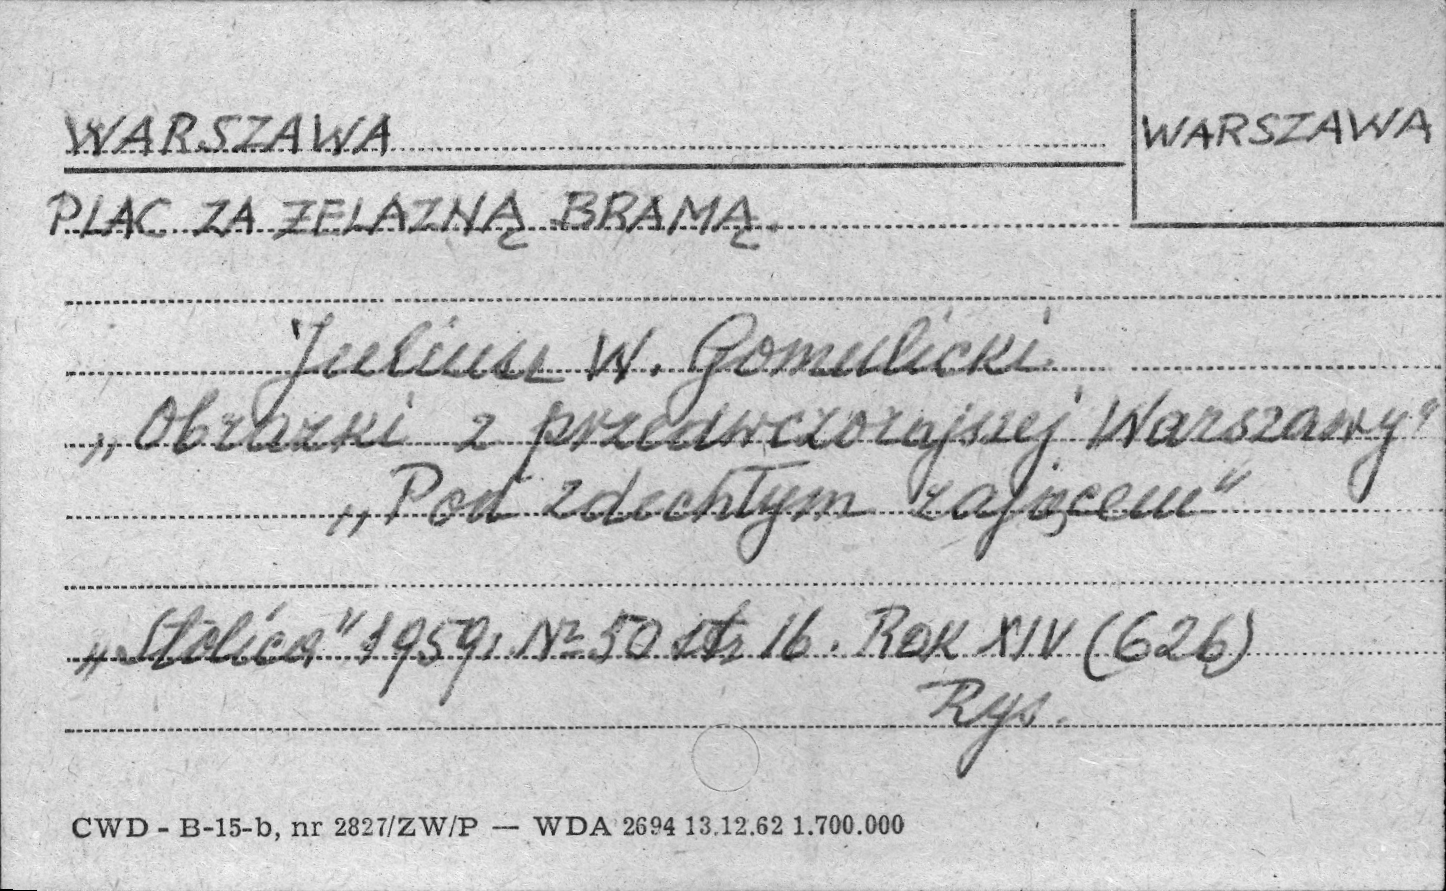 WARSZAWA
WARSZAWA
PLAC ZA ŻELAZNĄ BRAMĄ.
Juliusz W. Gomulicki
„Obrazki z przedwczorajszej Warszawy"
„Pod zdechłym zającem"
„Stolica" 1959, № 50 str 16. Rok XIV (626)
Rys.
CWD - B-15-b, nr 2827/ZW/P — WDA 2694 13.12.62 1.700.000